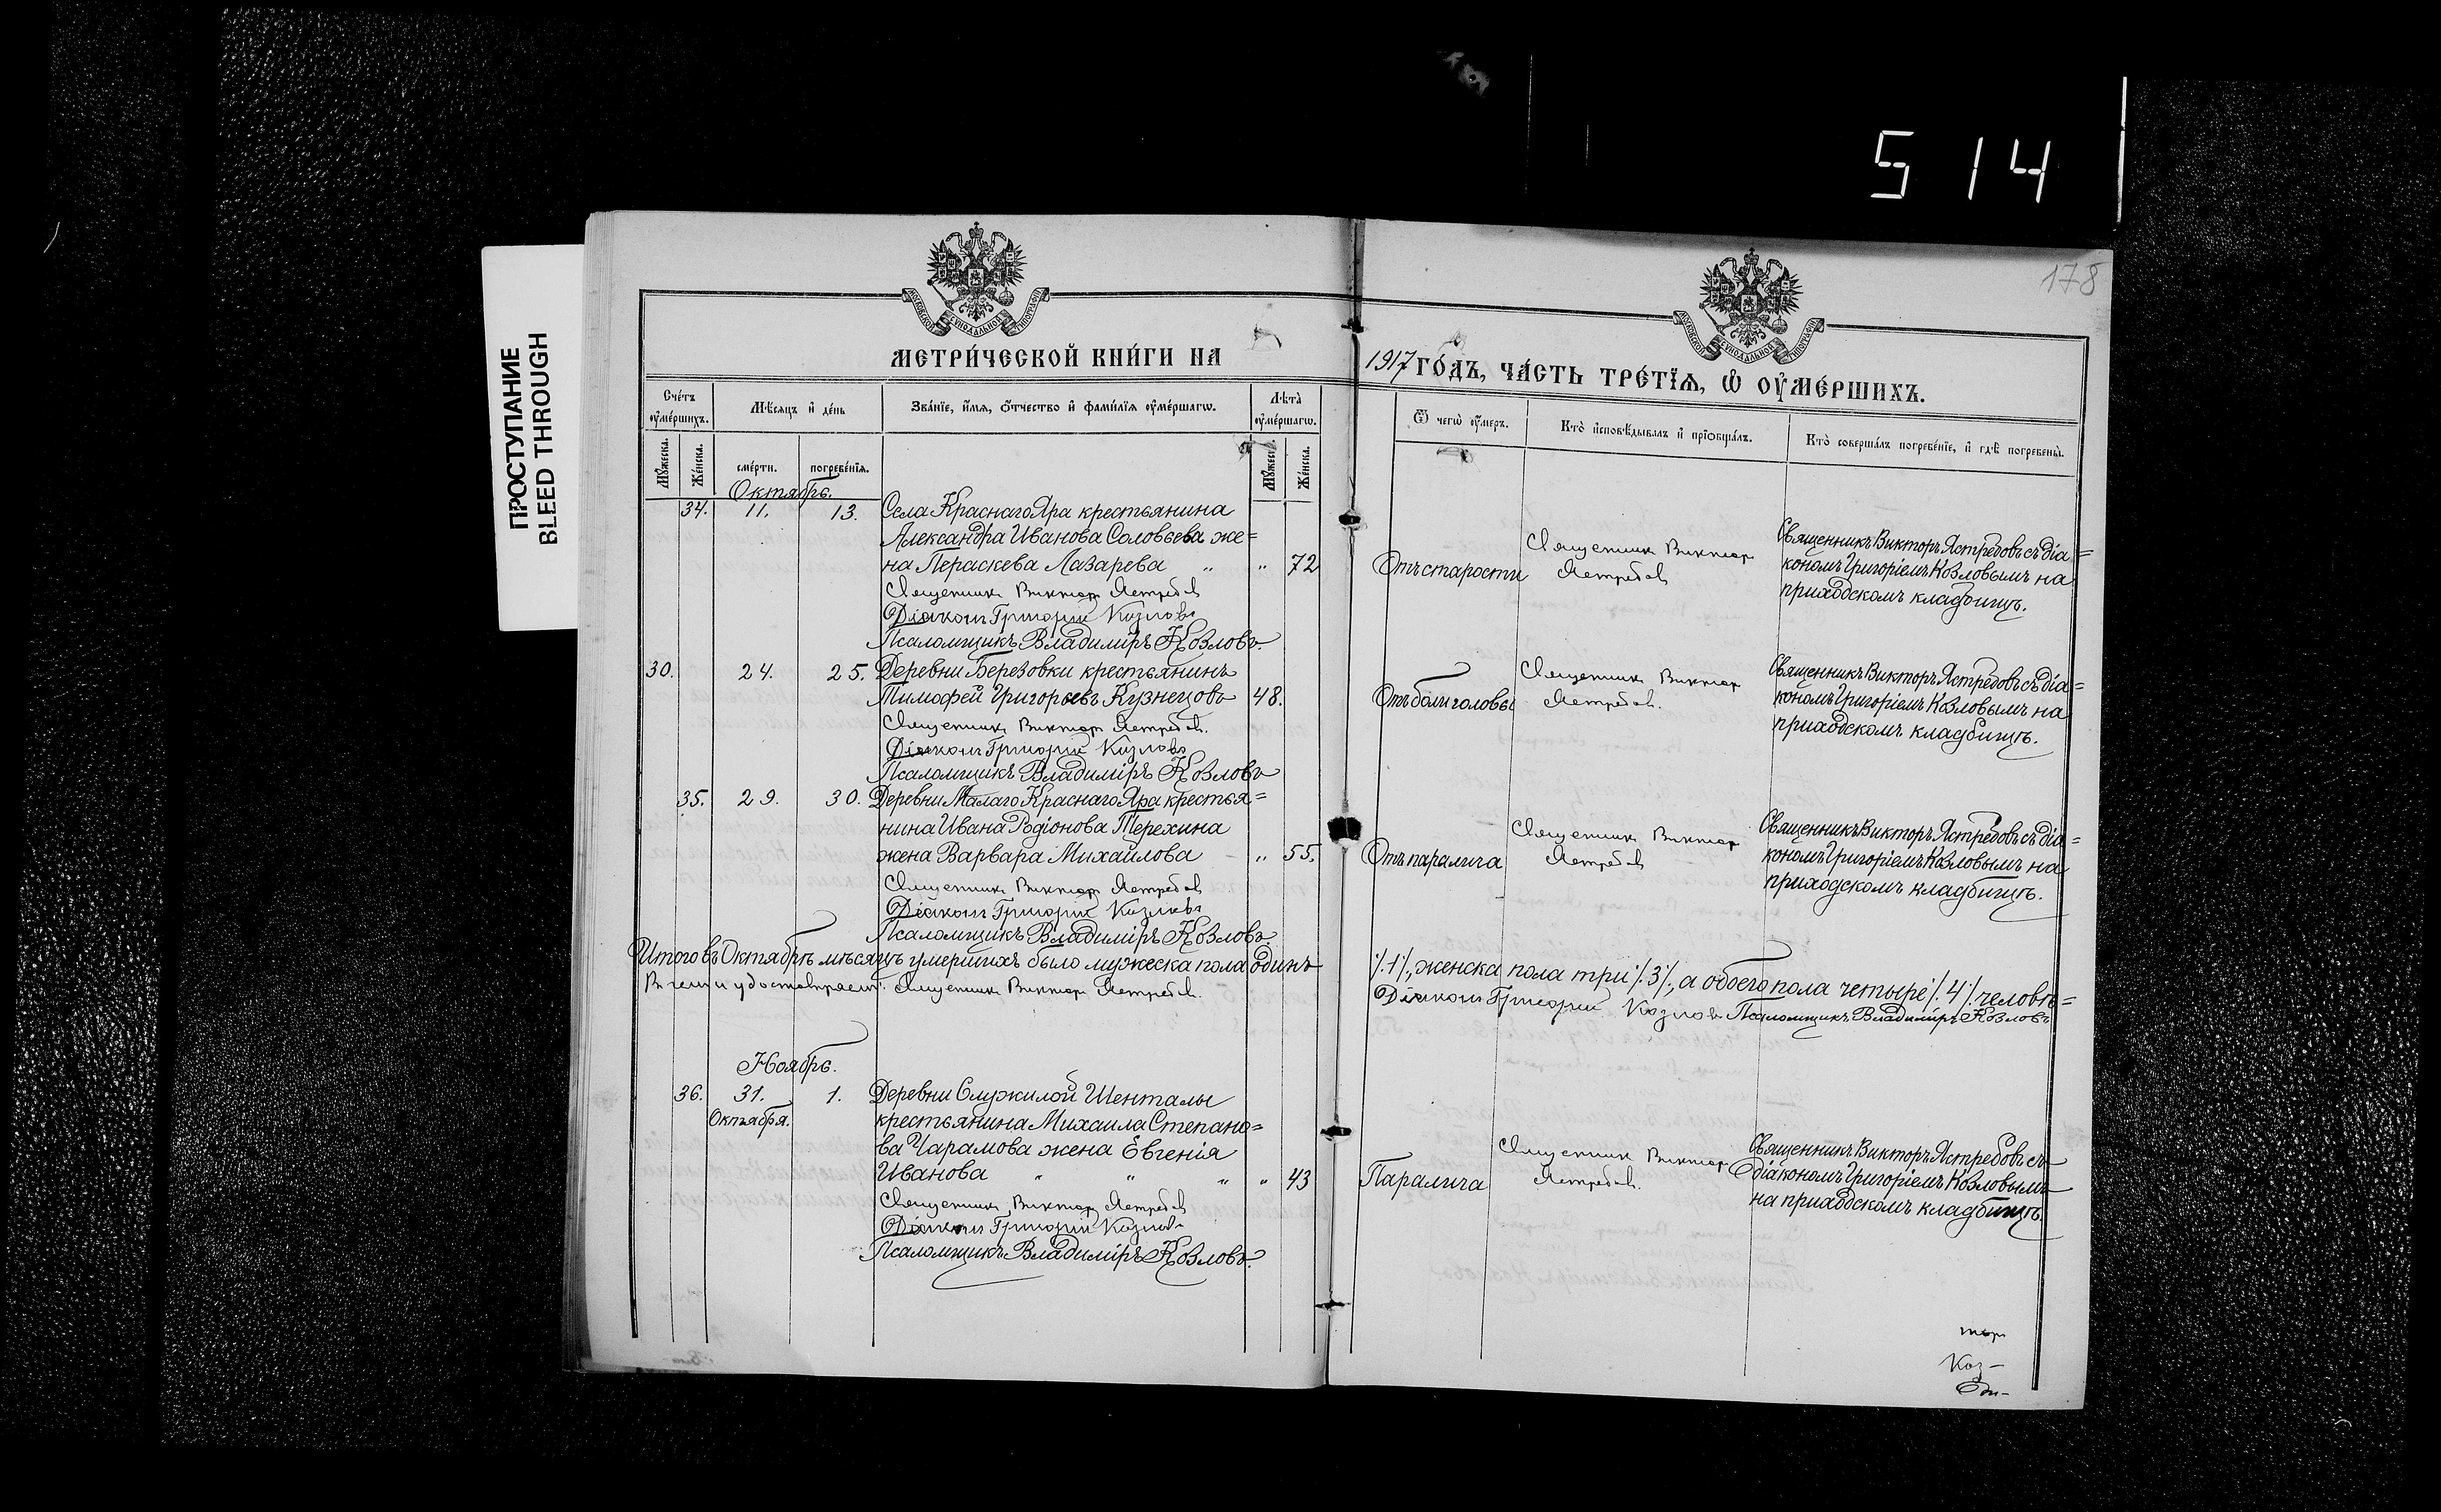 514
178
ПРОСТУПАНИЕ
BLEED THROUGH
МЕТРИ́ЧЕСКОЙ КНИ́ГИ НА
1917 ГО́ДЪ, ЧА́СТЬ ТРЕ́ТЇѦ, Ѡ҆ ОУ҆МЕ́РШИХЪ.
Сче́тъ оу҆ме́ршихъ.
Мѣ́сяцъ и҆ де́нь
Зва́нїе, и҆́мя, ѻ҆́тчество и҆ фами́лїя оу҆ме́ршагѡ.
Лѣ́та оу҆ме́ршагѡ.
Ѿ чегѡ̀ оу҆́меръ.
Кто̀ и҆сповѣ́дывалъ и҆ прїѻбща́лъ.
Кто̀ соверша́лъ погребе́нїе, и҆ гдѣ̀ погребены̀.
Мꙋ́жеска.
Же́нска.
сме́рти.
погребе́нїя.
Мꙋ́жеска.
Же́нска.
Октябрь.
34. 11. 13. Села Краснаго Яра крестьянина
Александра Иванова Соловьева же=
на Параскева Лазарева " " 72
Священникъ Викторъ Ястребовъ
Діаконъ Григорій Козловъ
Псаломщикъ Владиміръ Козловъ.
Отъ старости
Священникъ Викторъ
Ястребовъ
Священникъ Викторъ Ястребовъ съ діа=
кономъ Григоріемъ Козловымъ на
приходскомъ кладбищѣ.
30. 24. 25. Деревни Березовки крестьянинъ
Тимофей Григорьевъ Кузнецовъ 48.
Священникъ Викторъ Ястребовъ.
Діаконъ Григорій Козловъ
Псаломщикъ Владиміръ Козловъ
Отъ боли головы
Священникъ Викторъ
Ястребовъ.
Священникъ Викторъ Ястребовъ съ діа=
кономъ Григоріемъ Козловымъ на
приходскомъ кладбищѣ.
35. 29. 30. Деревни Малаго Краснаго Яра крестья=
нина Ивана Родіонова Терехина
жена Варвара Михайлова " 55.
Священникъ Викторъ Ястребовъ
Діаконъ Григорій Козловъ
Псаломщикъ Владиміръ Козловъ.
Отъ паралича
Священникъ Викторъ
Ястребовъ
Священникъ Викторъ Ястребовъ съ діа=
кономъ Григоріемъ Козловымъ на
приходскомъ кладбищѣ.
Итого въ Октябрѣ мѣсяцѣ умершихъ было мужеска пола одинъ
/.1/., женска пола три /.3/., а обоего пола четыре /.4/. человѣ=
В чем и удостоверяем: Священникъ Викторъ Ястребовъ.
Діаконъ Григорій Козловъ Псаломщикъ Владиміръ Козловъ
Ноябрь.
36. 31. 1. Деревни Служилой Шенталы
Октября. крестьянина Михаила Степано=
ва Чарамова жена Евгенія
Иванова " " " " 43
Священникъ Викторъ Ястребовъ
Діаконъ Григорій Козловъ
Псаломщикъ Владиміръ Козловъ.
Паралича
Священникъ Викторъ
Ястребовъ.
Священникъ Викторъ Ястребовъ съ
діакономъ Григоріемъ Козловымъ
на приходскомъ кладбищѣ.
тор
Коз-